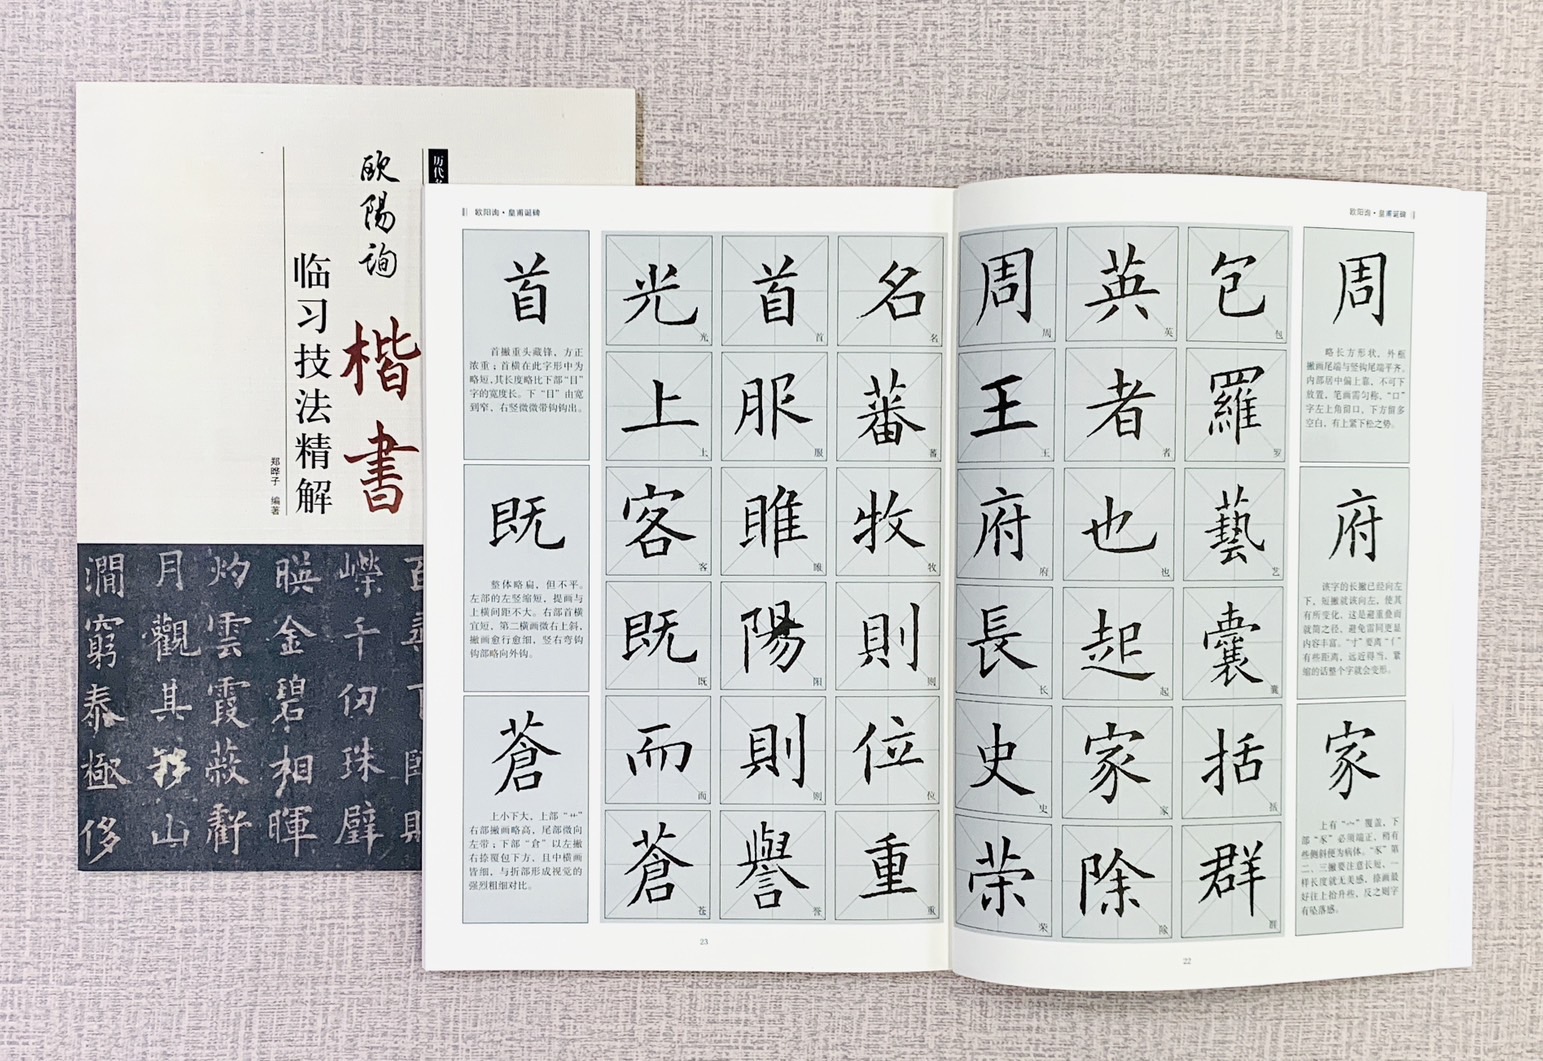 历代名
欧陽询
楷書
临习技法精解
郑晔子 编著
欧阳询·皇甫诞碑
周
略长方形状，外框
撇画尾端与竖钩尾端平齐。
内部居中偏上靠，不可下
放置，笔画需匀称，“口”
字左上角留口，下方留多
空白，有上紧下松之势。
府
该字的长撇已经向左
下，短撇就该向左，使其
有所变化，这是避重叠而
就简之径，避免雷同更显
内容丰富。“寸”要离“亻”
有些距离，远近得当，紧
缩的话整个字就会变形。
家
上有“宀”覆盖，下
部“豕”必须端正，稍有
些侧斜便为病体。“豕”第
二、三撇要注意长短，一
样长度就太美感，捺画最
好往上抬升些，反之则字
有坠落感。
包 包
羅 罗
藝 艺
囊 囊
括 括
群 群
英 英
者 者
也 也
起 起
家 家
除 除
周 周
王 王
府 府
長 长
史 史
荣 荣
22
欧阳询·皇甫诞碑
名 名
蕃 蕃
牧 牧
則 则
位 位
重 重
首 首
服 服
雎 雎
陽 阳
則 则
譽 誉
光 光
上 上
客 客
既 既
而 而
蒼 苍
首
首撇重头藏锋，方正
浓重；首横在此字形中为
略短，其长度略比下部“目”
字的宽度长。下“目”由宽
到窄，右竖微微带钩钩出。
既
整体略扁，但不平。
左部的左竖缩短，提画与
上横间距不大。右部首横
宜短，第二横画微右上斜，
撇画愈行愈细，竖右弯钩
钩部略向外钩。
蒼
上小下大，上部“艹”
右部撇画略高，尾部微向
左带；下部“倉”以左撇
右捺覆包下方，且中横画
皆细，与折部形成视觉的
强烈粗细对比。
23
嶸千仞珠璧
暎金碧相暉
灼雲霞蔽虧
月觀其移山
澗窮泰極侈